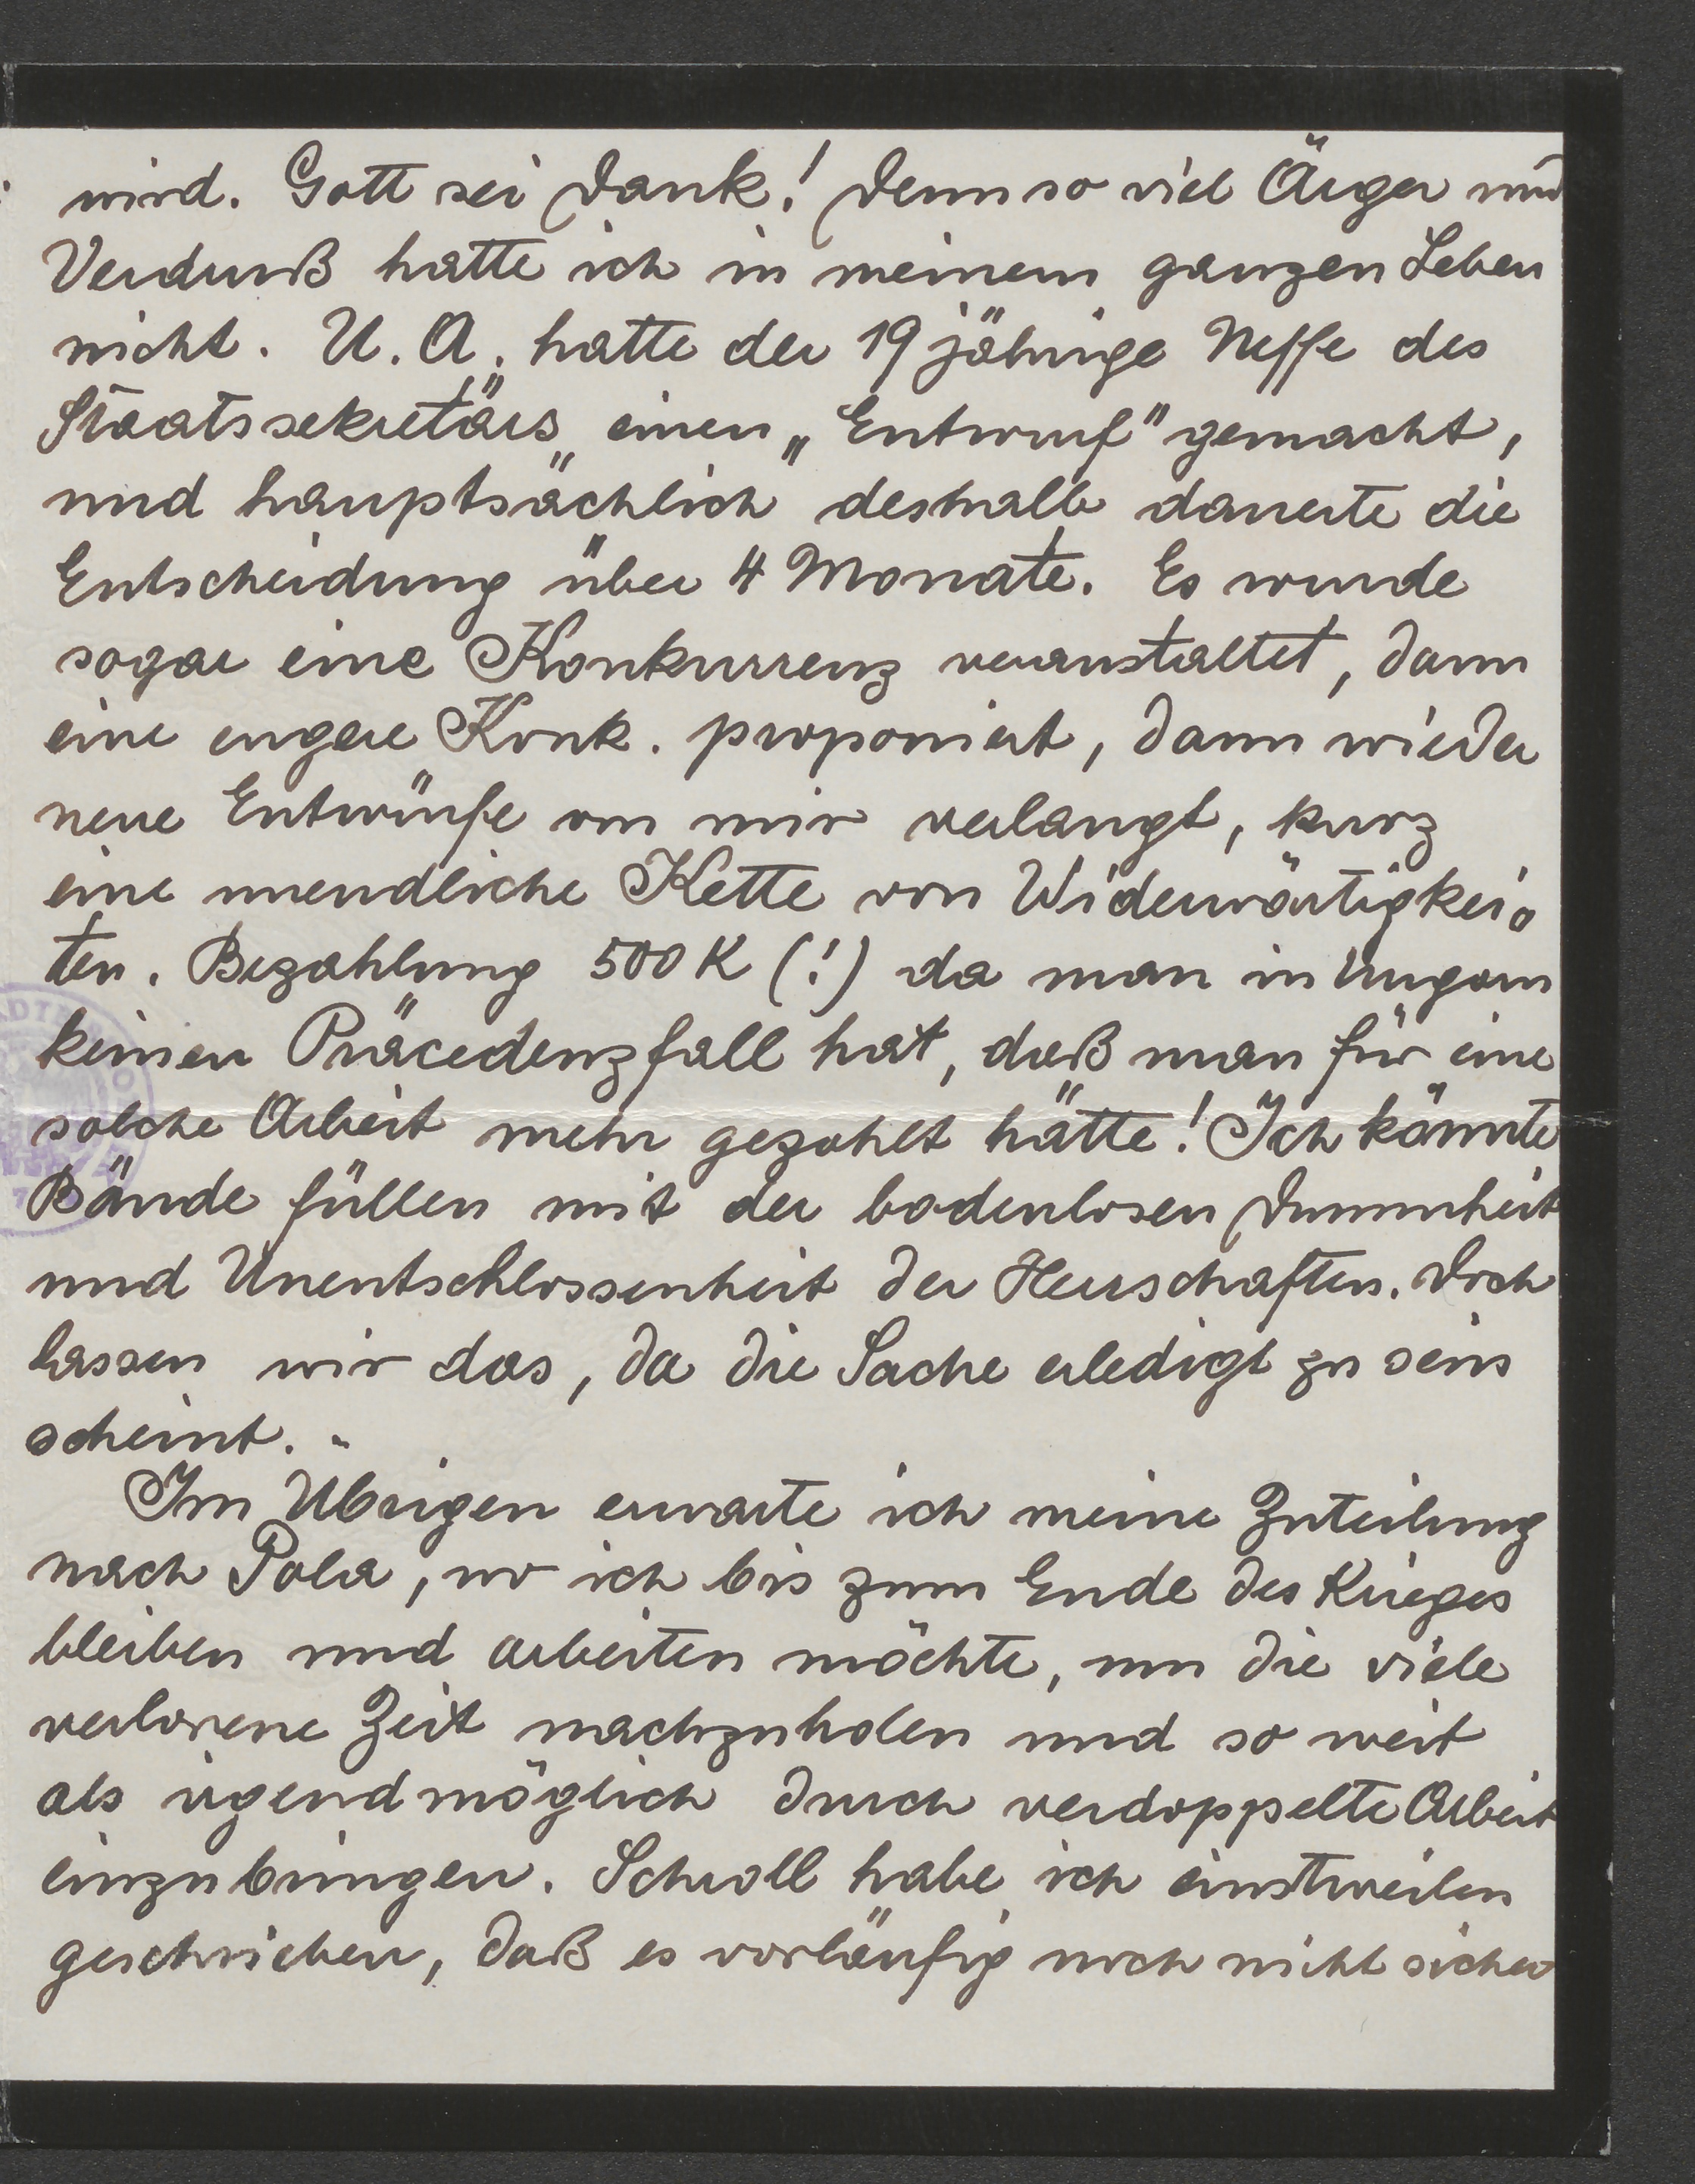 wird. Gott sei Dank! Denn so viel Ärger und
Verdruß hatte ich in meinem ganzen Leben
nicht. U. A. hatte der 19 jährige Neffe des
Staatssekretärs einen „Entwurf" gemacht,
und hauptsächlich deshalb dauerte die
Entscheidung über 4 Monate. Es wurde
sogar eine Konkurrenz veranstaltet, dann
eine engere Konk. proponiert, dann wieder
neue Entwürfe von mir verlangt, kurz
eine unendliche Kette von Widerwärtigkei-
ten. Bezahlung 500 K (!) da man in Ungarn
keinen Präcedenzfall hat, daß man für eine
solche Arbeit mehr gezahlt hätte! Ich könnte
Bände füllen mit der bodenlosen Dummheit
und Unentschlossenheit der Herrschaften. Doch
lassen wir das, da die Sache erledigt zu sein
scheint. -
Im Übrigen erwarte ich meine Zuteilung
nach Pola, wo ich bis zum Ende des Krieges
bleiben und arbeiten möchte, um die viele
verlorene Zeit nachzuholen und so weit
als irgendmöglich durch verdoppelte Arbeit
einzubringen. Schroll habe ich einstweilen
geschrieben, daß es vorläufig noch nicht sicher